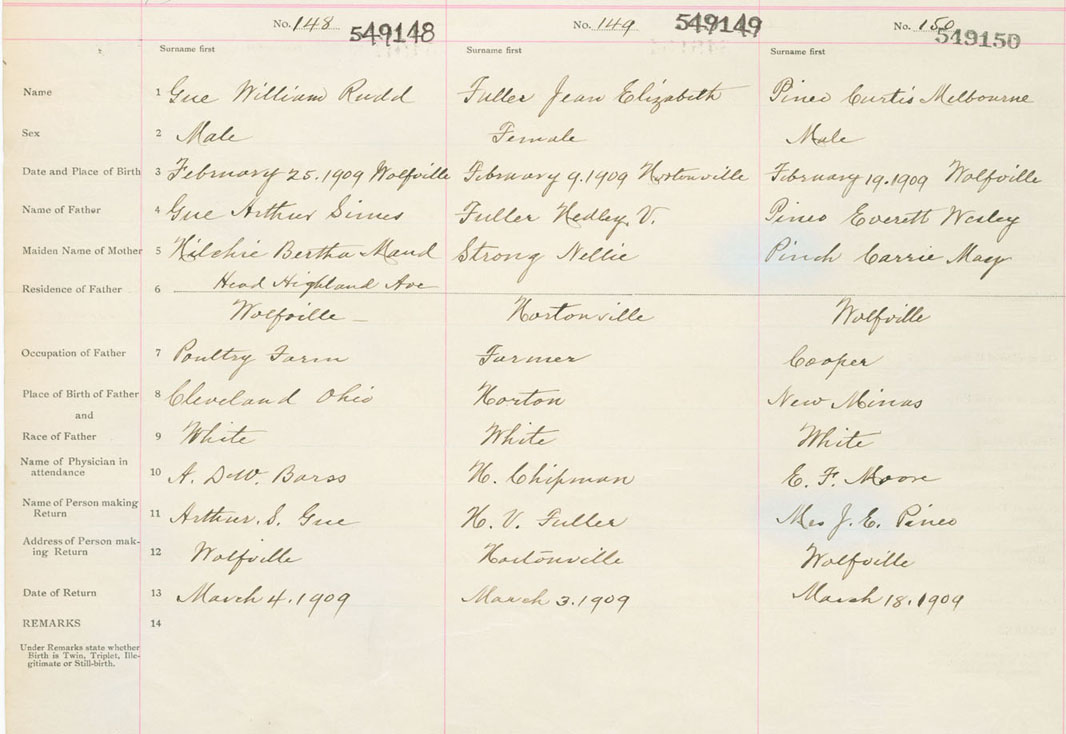 No. 148 549148 No. 149 549149 No. 150 549150
Surname first Surname first Surname first
Name 1 Gue William Rudd Fuller Jean Elizabeth Pineo Curtis Melbourne
Sex 2 Male Female Male
Date and Place of Birth 3 February 25. 1909 Wolfville February 9. 1909 Hortonville February 19. 1909 Wolfville
Name of Father 4 Gue Arthur Simes Fuller Hedley V. Pineo Everett Wesley
Maiden Name of Mother 5 Kilchie Bertha Maud Strong Nellie Pinch Carrie May
Residence of Father 6 Head Highland Ave
Wolfville Hortonville Wolfville
Occupation of Father 7 Poultry Farm Farmer Cooper
Place of Birth of Father 8 Cleveland Ohio Horton New Minas
and
Race of Father 9 White White White
Name of Physician in
attendance 10 A. DeW. Barss H. Chipman E. F. Moore
Name of Person making
Return 11 Arthur. S. Gue H. V. Fuller Mrs J. E. Pineo
Address of Person mak-
ing Return 12 Wolfville Hortonville Wolfville
Date of Return 13 March 4. 1909 March 3. 1909 March 18. 1909
REMARKS 14
Under Remarks state whether
Birth is Twin, Triplet, Ille-
gitimate or Still-birth.